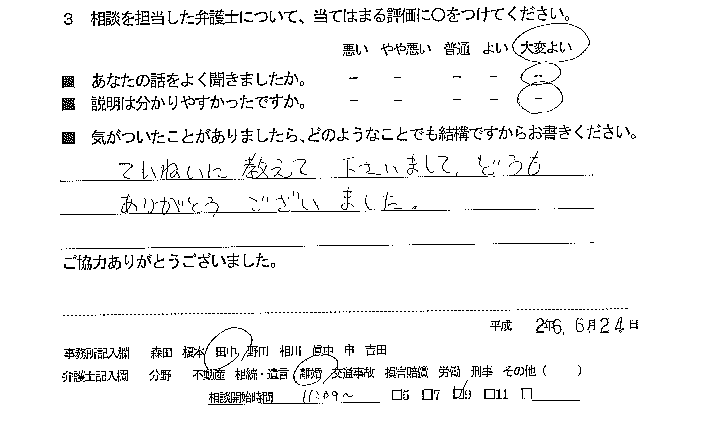 3 相談を担当した弁護士について、当てはまる評価に○をつけてください。
悪い やや悪い 普通 よい 大変よい
あなたの話をよく聞きましたか。 － － － － －
説明は分かりやすかったですか。 － － － － －
気がついたことがありましたら、どのようなことでも結構ですからお書きください。
ていねいに 教えて 下さいまして、どうも
ありがとう ございました。
ご協力ありがとうございました。
平成 26, 6月24日
事務所記入欄 森田 榎本 田中 野田 相川 吉田
弁護士記入欄 分野 不動産 相続・遺言 離婚 交通事故 損害賠償 労働 刑事 その他（ ）
相談開始時間 □5 □7 ☑9 □11 □